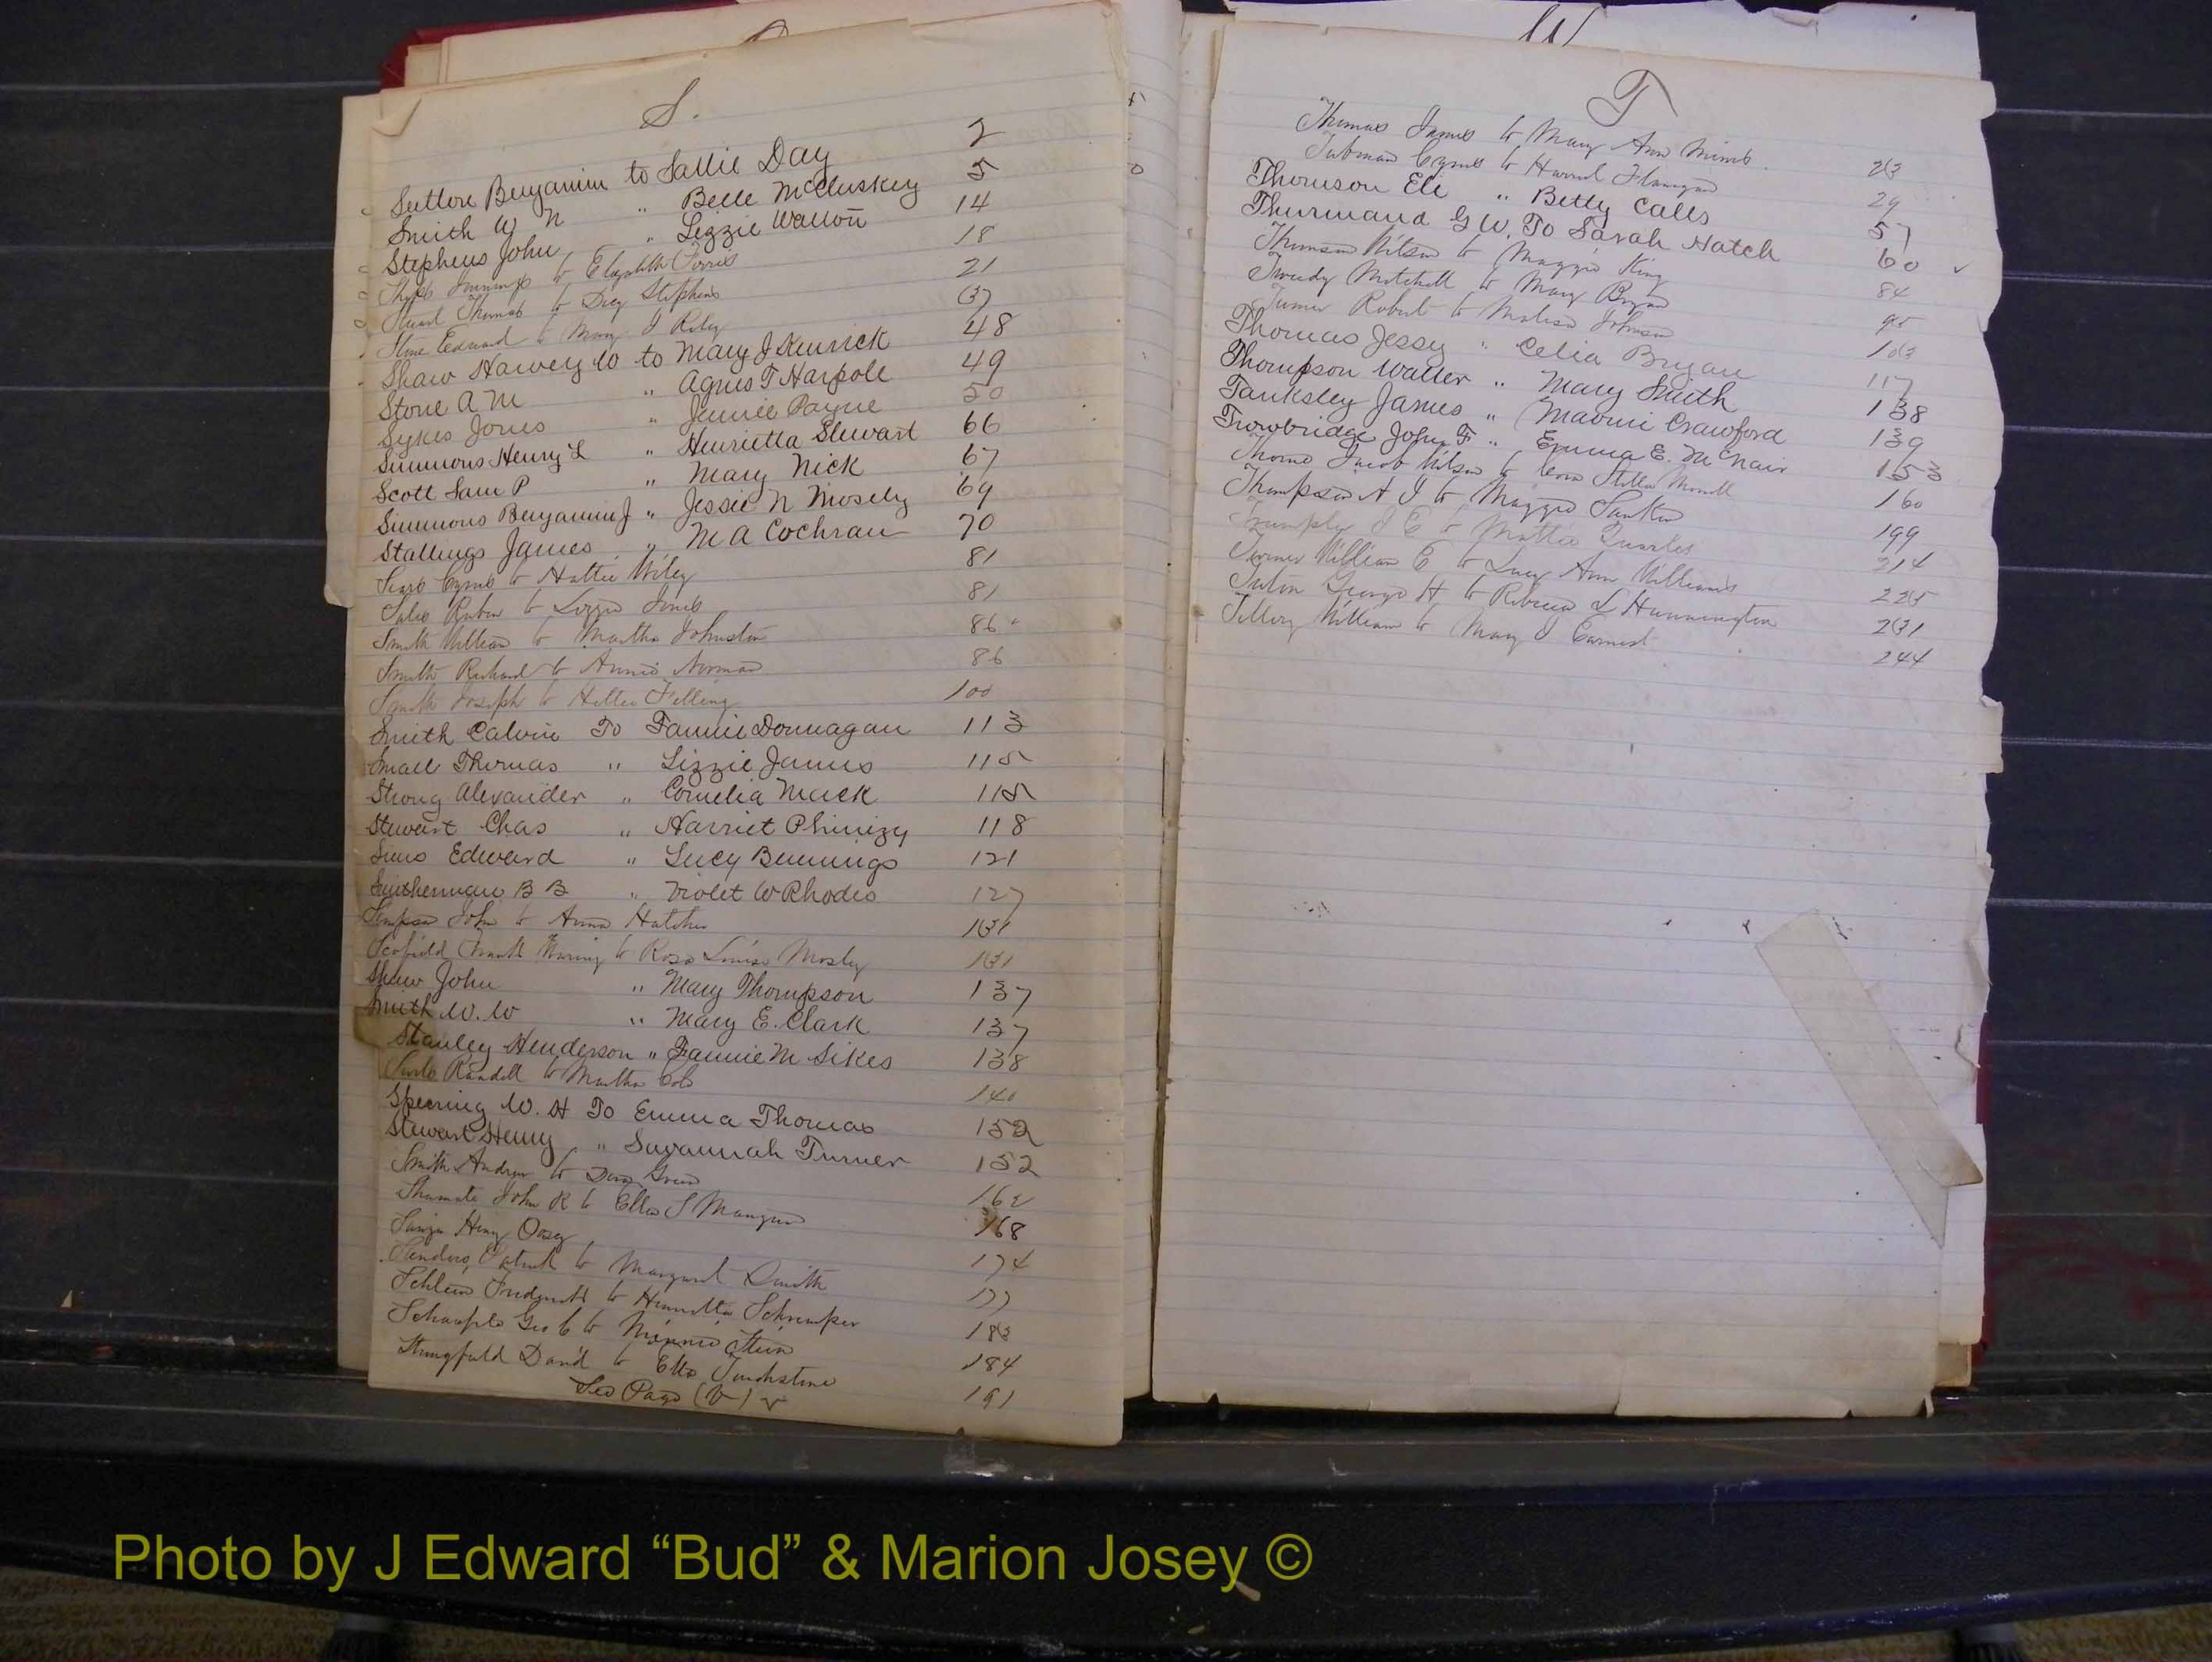 S.
Sutton Benjamin to Sallie Day 2
Smith W N " Belle McCluskey 5
Stephens John " Lizzie Walton 14
Jennings to Elizabeth 18
Stuart Thomas to Dicy Stephens 21
Stone Edward to Mary J Riley 37
Shaw Harvey W to Mary J Kenrick 48
Stone A M " Agnes T Harpole 49
Sykes Jones " Jennie Payne 50
Simmons Henry L " Henrietta Stewart 66
Scott Sam P " Mary Nick 67
Simmons Benjamin J " Jessie N Mosely 69
Stallings James " M A Cochran 70
Cyrus to Hattie Wiley 81
Ruben to Lizzie Jones 81
Smith William to Martha Johnston 86
Smith Richard to Annie Norman 86
Smith Joseph to 100
Smith Calvin To Fannie Donnagan 113
Small Thomas " Lizzie James 115
Strong Alexander " Cornelia Mack 115
Stewart Chas " Harriet Phinizy 118
Sims Edward " Lucy Bennings 121
B B " Violet W Rhodes 127
Simpson John to Anna Hatcher 131
Scofield Frank to Rosa Louise Mosley 131
Shaw John " Mary Thompson 137
Smith W. W " Mary E. Clark 137
Stanley Henderson " Fannie M Sikes 138
Randell to Martha 140
Speering W. H To Emma Thomas 152
Stewart Henry " Savannah Turner 152
Smith Andrew to Green 162
Shumate John R to Ella S Mangum 168
Henry 174
Sanders Patrick to Margaret Smith 177
Schlein Frederick to Henrietta Schremper 183
Geo C to Minnie Stein 184
Stringfield David to Etta Touchstone 191
See Page (V)
T
Thomas James to Mary Ann Mims 23
Tubman Cyrus to Harriet Flanagan 29
Thomson Eli " Betty Calls 57
Thurmand G W. To Sarah Hatch 60
Thomson Wilson to Maggie King 84
Tweedy Mitchell to Mary Bryan 95
Turner Robert to Malissa Johnson 103
Thomas Jessy " Celia Bryan 117
Thompson Walter " Mary Smith 138
Tanksley James " Maomi Crawford 139
Trowbridge John F " Emma E. McNair 153
Thorne Jacob Wilson to Cora Stella 160
Thompson A J to Maggie 199
J E to Mattie Quarles 214
Turner William E to Lucy Ann Williams 225
George H to Rebecca L Hunnington 231
Tillery William to Mary J Earnest 244
Photo by J Edward “Bud” & Marion Josey ©